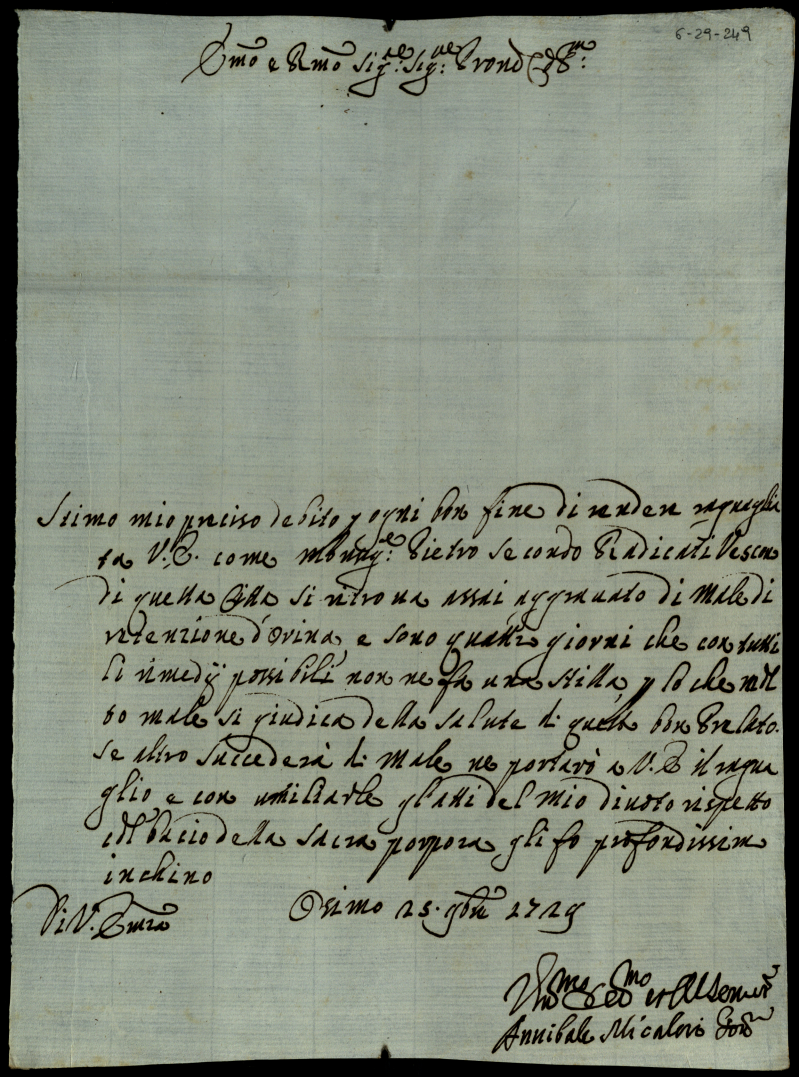 6-29-249
Emo e Rmo Sigre: Sigre: Prone Col:mo
Stimo mio preciso debito p ogni bon fine di rendere raguaglia
ta V. E. come Monsigre: Pietro Secondo Radicati Vescovo
di questa Città si ritrova assai aggravato di male di
retenzione d'Orina, e sono quattro giorni che con tutti
li rimedij possibili non ne fa una stilla, p lo che molto
male si giudica della salute di questo bon Prelato.
se altro succederà di male ne portarò a V. E. il ragua
glio e con umiliarle gl'atti del mio divoto rispetto
col bacio della sacra porpora gli fo profondissimo
inchino
Di V. Emza Osimo 25. 9bre 1729
Umo Devmo et Obl Servre
Annibale Micalori